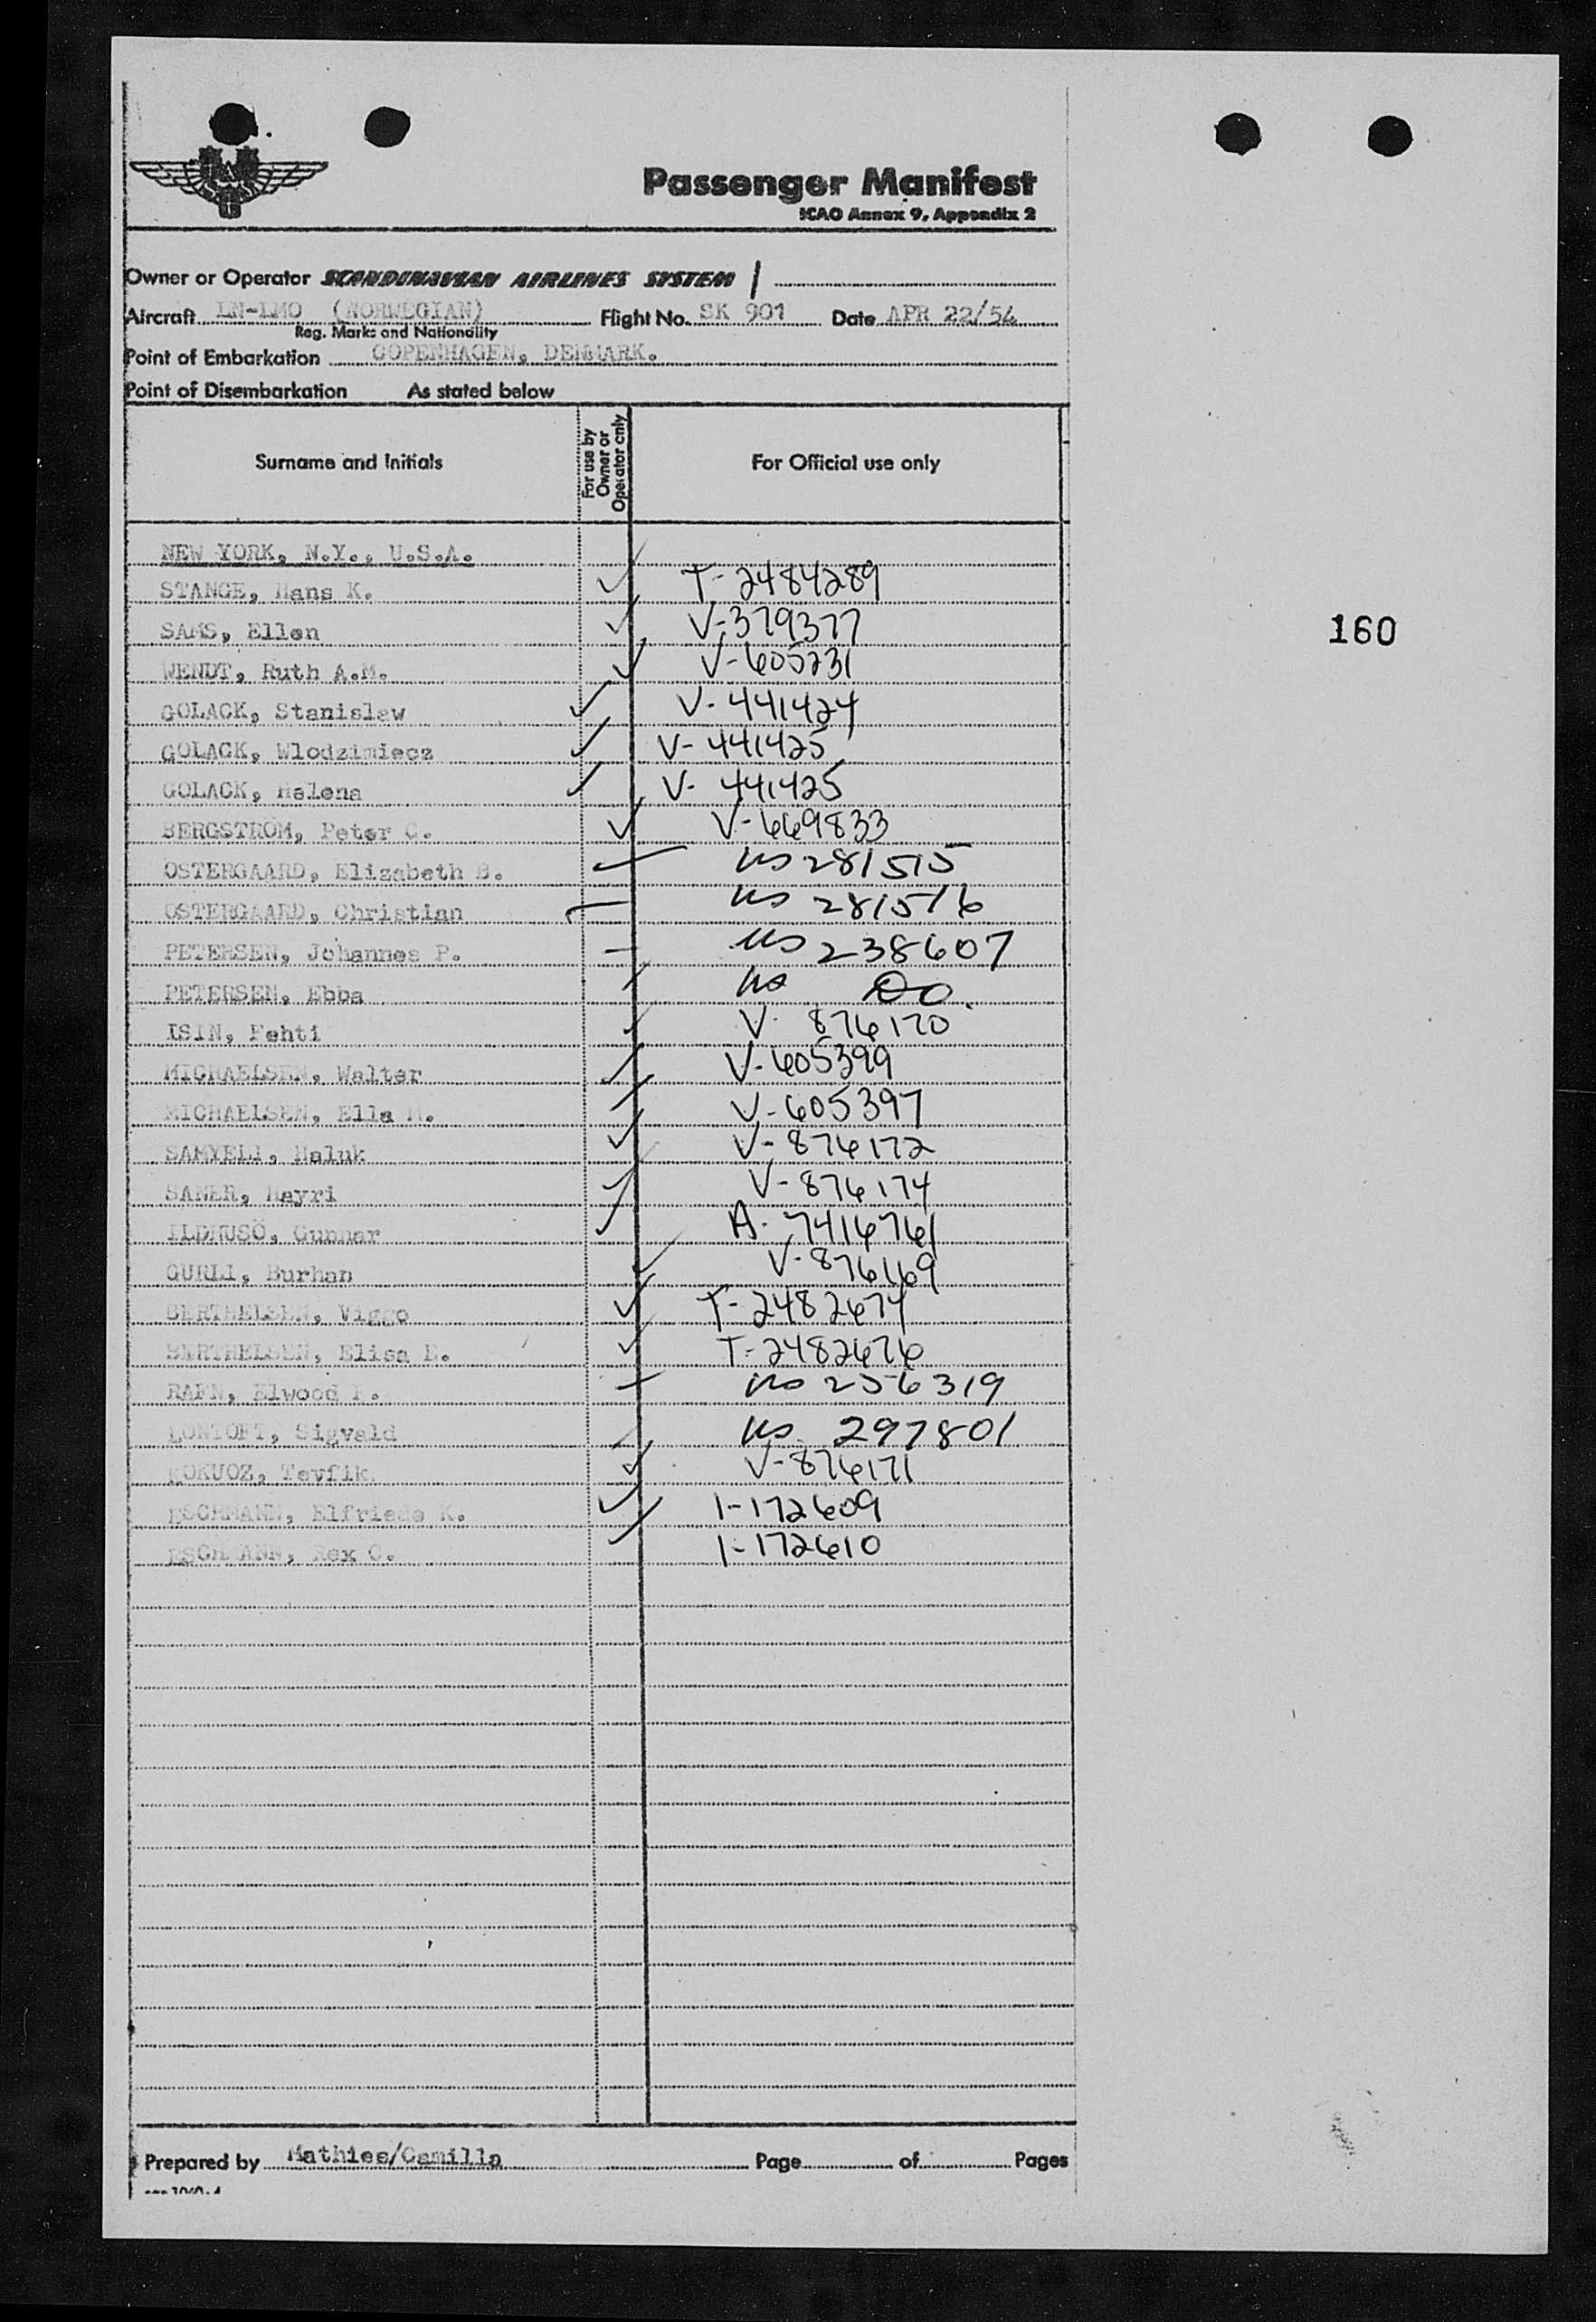 Passenger Manifest
ICAO Annex 9, Appendix 2
Owner or Operator SCANDINAVIAN AIRLINES SYSTEM /
Aircraft LN-LMO (NORWEGIAN) Flight No. SK 901 Date APR 22/54
Reg. Marks and Nationality
Point of Embarkation COPENHAGEN, DENMARK.
Point of Disembarkation As stated below
Surname and Initials For use by Owner or Operator only For Official use only
NEW YORK, N.Y., U.S.A.
STANGE, Hans K. ✓ T-2484289
SAMS, Ellen ✓ V-379377
160
WENDT, Ruth A.M. ✓ V-605231
GOLACK, Stanislaw ✓ V-441424
GOLACK, Wlodzimiecz ✓ V-441425
GOLACK, Helena ✓ V-441425
BERGSTROM, Peter C. ✓ V-669833
OSTERGAARD, Elizabeth B. US 281515
OSTERGAARD, Christian US 281516
PETERSEN, Johannes P. US 238607
PETERSEN, Ebba US DO.
ISIN, Fehti ✓ V-876170
MICHAELSEN, Walter ✓ V-605399
MICHAELSEN, Ella M. ✓ V-605397
SAMYELI, Haluk ✓ V-876172
SANER, Hayri ✓ V-876174
ILDHUSÖ, Gunnar ✓ A-7416761
GURLI, Burhan ✓ V-876169
BERTHELSEN, Viggo ✓ T-2482674
BERTHELSEN, Elisa E. ✓ T-2482676
RAFN, Elwood I. US 256319
LONTOFT, Sigvald US 297801
Tevfik ✓ V-876171
ESCHMANN, Elfriede K. ✓ 1-172609
ESCHMANN, Rex O. ✓ 1-172610
Prepared by Mathies/Camilla Page of Pages